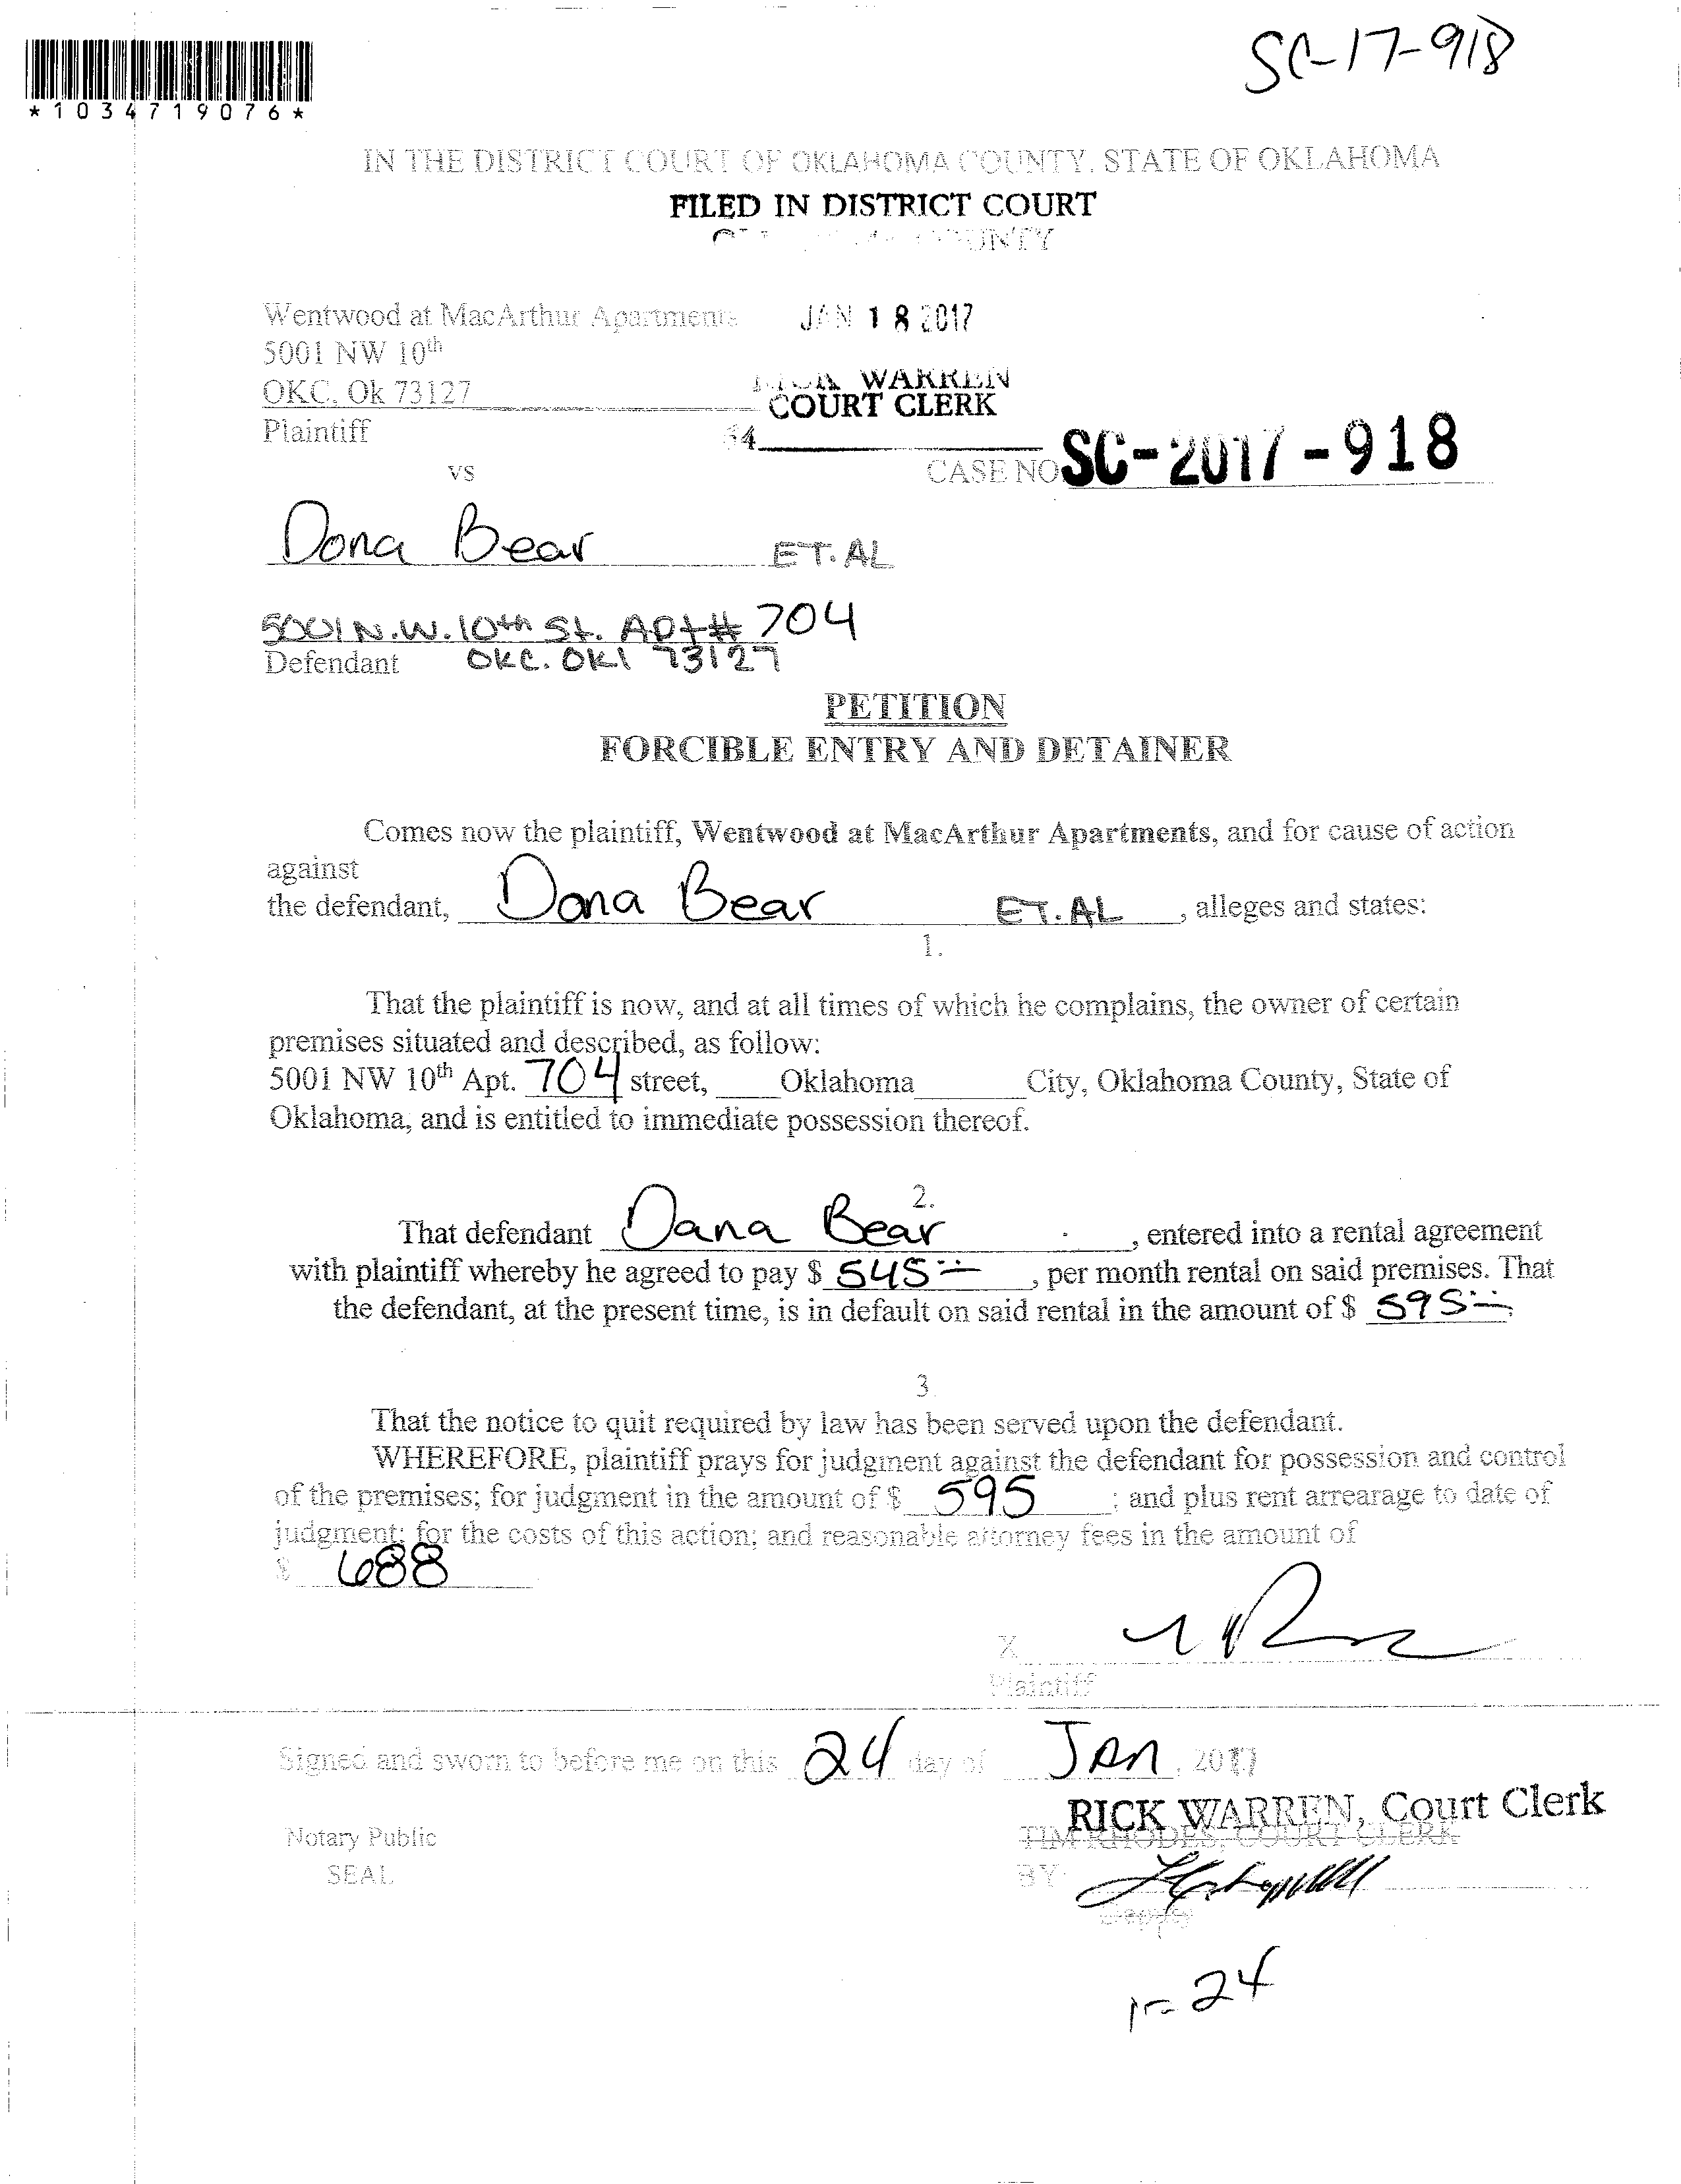 SC-17-918
*1034719076*
IN THE DISTRICT COURT OF OKLAHOMA COUNTY, STATE OF OKLAHOMA
FILED IN DISTRICT COURT
COUNTY
Wentwood at MacArthur Apartments
JAN 18 2017
5001 NW 10th
OKC, Ok 73127
RICK WARREN
COURT CLERK
Plaintiff
34
vs
CASE NO SC-2017-918
Dona Bear ET.AL
5001 N.W. 10th St. Apt# 704
Defendant OKC. OKl 73127
PETITION
FORCIBLE ENTRY AND DETAINER
Comes now the plaintiff, Wentwood at MacArthur Apartments, and for cause of action
against
the defendant, Dona Bear ET.AL, alleges and states:
1.
That the plaintiff is now, and at all times of which he complains, the owner of certain
premises situated and described, as follow:
5001 NW 10th Apt. 704 street, Oklahoma City, Oklahoma County, State of
Oklahoma, and is entitled to immediate possession thereof.
2.
That defendant Dana Bear, entered into a rental agreement
with plaintiff whereby he agreed to pay $ 545, per month rental on said premises. That
the defendant, at the present time, is in default on said rental in the amount of $ 595
3.
That the notice to quit required by law has been served upon the defendant.
WHEREFORE, plaintiff prays for judgment against the defendant for possession and control
of the premises; for judgment in the amount of $ 595; and plus rent arrearage to date of
judgment; for the costs of this action; and reasonable attorney fees in the amount of
$ 688
X
Plaintiff
Signed and sworn to before me on this 24 day of JAN, 2017
RICK WARREN, Court Clerk
Notary Public
TIM RHODES, COURT CLERK
SEAL
BY:
Deputy
24